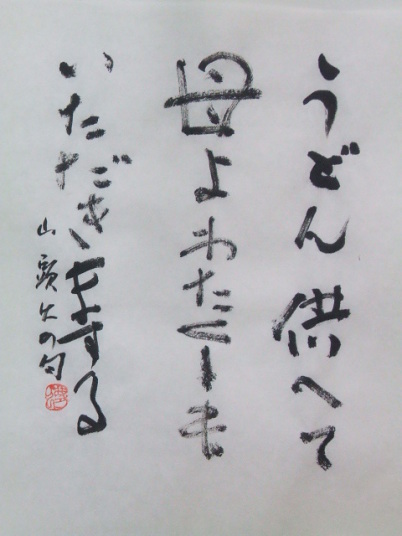 うどん供へて
母よわたくしも
いただきまする
山頭火の句